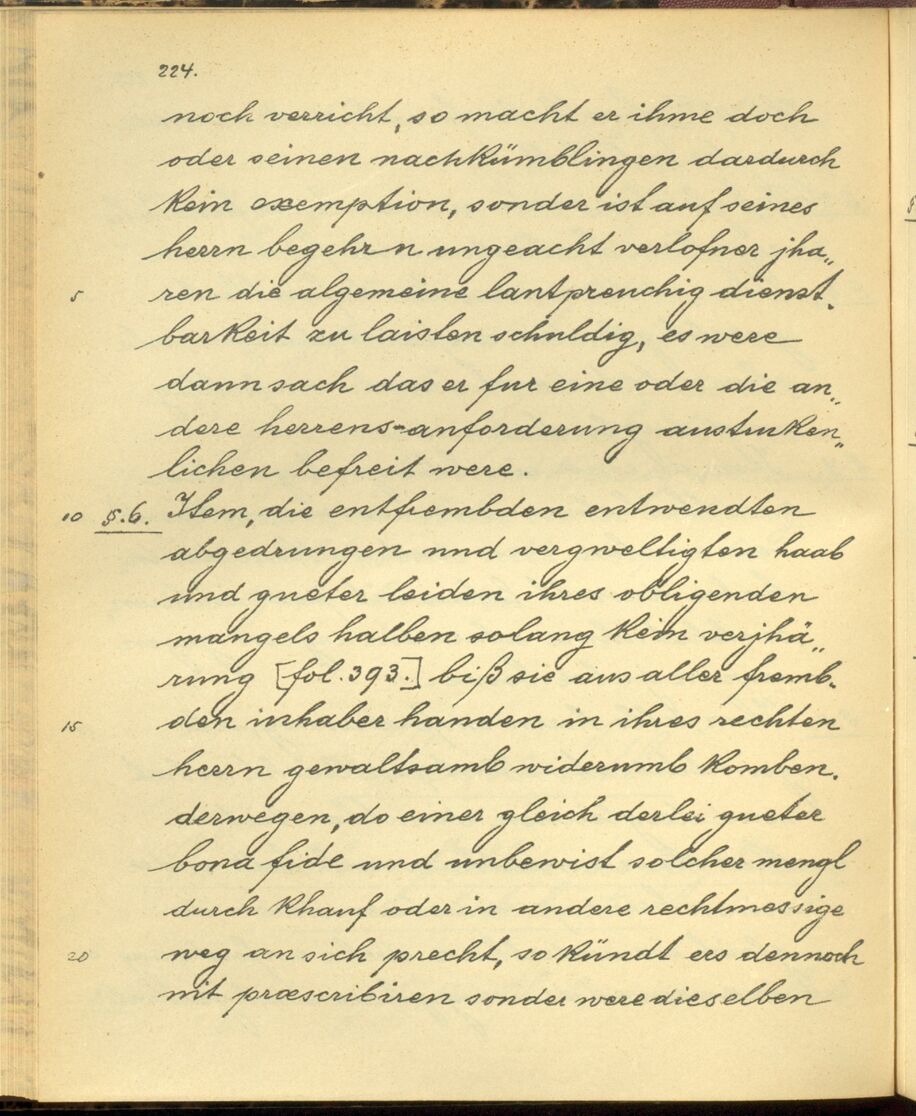 224.
noch verricht, so macht er ihme doch
oder seinen nachkümblingen dardurch
kein exemption, sonder ist auf seines
herrn begehrn ungeacht verlofner jha„
5 ren die algemeine lantpreuchig dienst„
barkeit zu laisten schuldig, es were
dann sach das er fur eine oder die an„
dere herrens-anforderung austruken„
lichen befreit were.
10 §.6. Item, die entfrembden entwendten
abgedrungen und vergweltigten haab
und gueter leiden ihres obligenden
mangels halben solang kein verjhä„
rung [fol. 393.] biß sie aus aller fremb„
15 den inhaber handen in ihres rechten
herrn gewaltsamb widerumb komben.
derwegen, do einer gleich derlei gueter
bona fide und unbewist solcher mengl
durch khauf oder in andere rechtmessige
20 weg an sich precht, so kündt ers dennoch
nit præscribiren sonder were dieselben